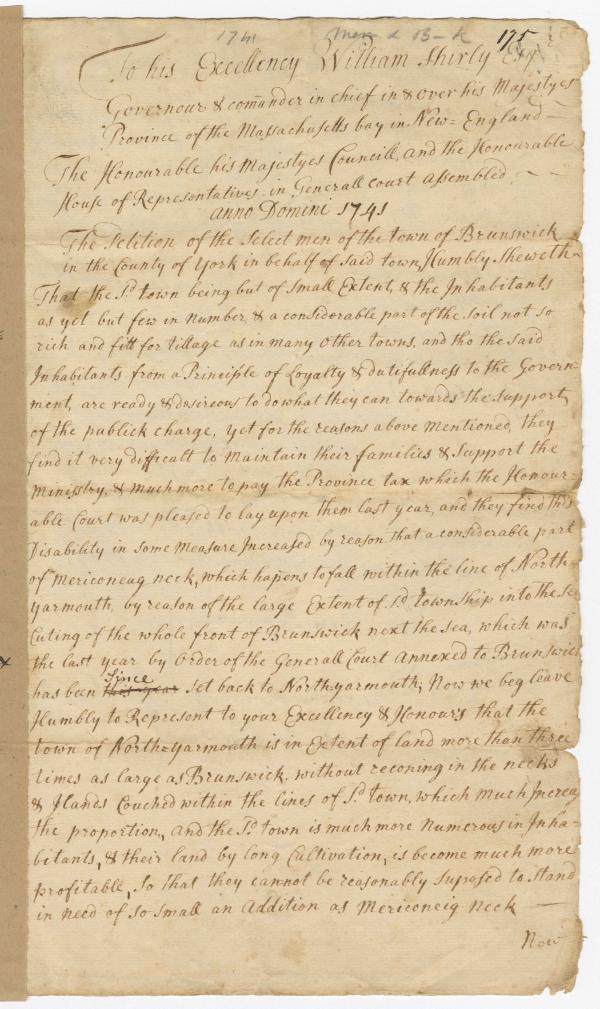 1741
175
To his Excellency William Shirly Esqr
Governour & comander in chief in & over his Majestyes
Province of the Massachusetts bay in New = England —
The Honourable his Majestyes Councill, and the Honourable
House of Representatives in Generall Court Assembled —
Anno Domini 1741
The Petition of the Select men of the town of Brunswick
in the County of York in behalf of said town, Humbly Sheweth
That the sd. town being but of Small Extent, & the Inhabitants
as yet but few in Number, & a considerable part of the soil not so
rich and fitt for tillage as in many other towns, and tho the said
Inhabitants from a Principle of Loyalty & dutifullness to the Govern-
ment, are ready & desireous to do what they can towards the Support
of the publick charge, yet for the reasons above Mentioned, they
find it very difficult to maintain their families & Support the
Ministry, & much more to pay the Province tax which the Honour-
able Court was pleased to lay upon them last year, and they find this
Disability in some Measure Increased by reason that a considerable part
of Mericoneag neck, which hapens to fall within the line of North
yarmouth, by reason of the large Extent of sd. township into the Sea
Cuting of the whole front of Brunswick next the Sea, which was
the last year by Order of the Generall Court Annexed to Brunswick
Since
has been this year set back to North-yarmouth; Now we beg leave
Humbly to Represent to your Excellency & Honours that the
town of North=yarmouth is in Extent of land more than three
times as large as Brunswick, without reconing in the necks
& Ilands Couched within the lines of sd. town, which much Increas
the proportion, and the sd. town is much more Numerous in Inha-
bitants, & their land by long Cultivation, is become much more
profitable, so that they cannot be reasonably suposed to Stand
in need of so small an Addition as Mericoneig Neck —
Now